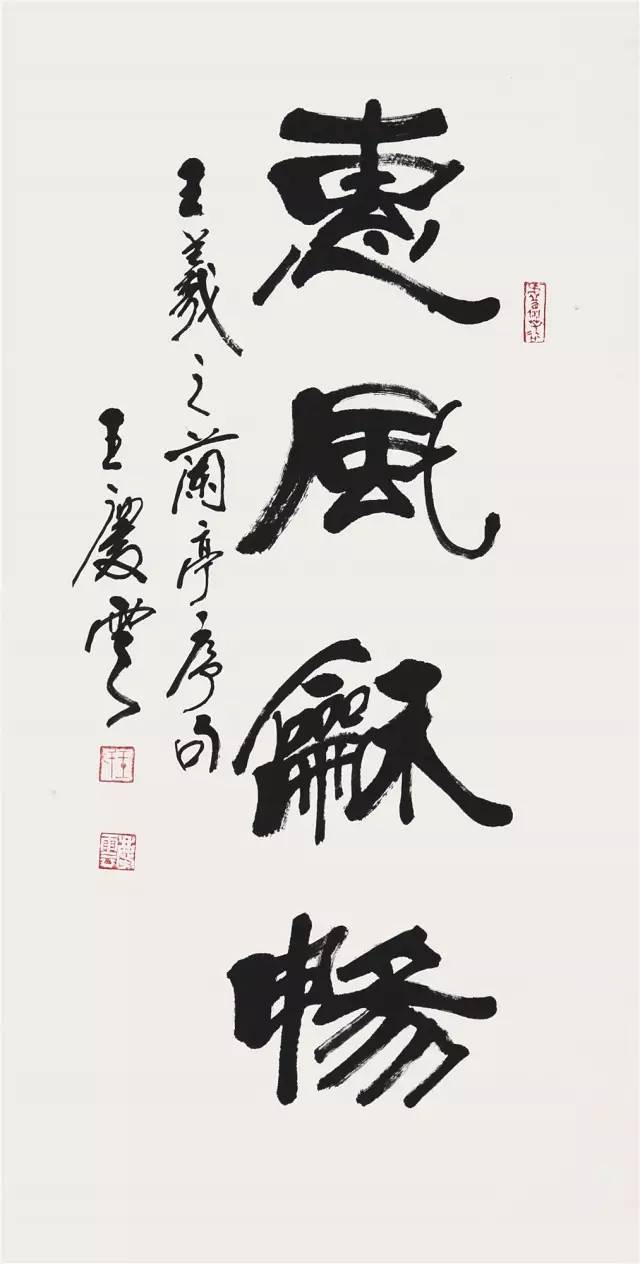 惠風龢暢
王羲之蘭亭序句
王慶雲